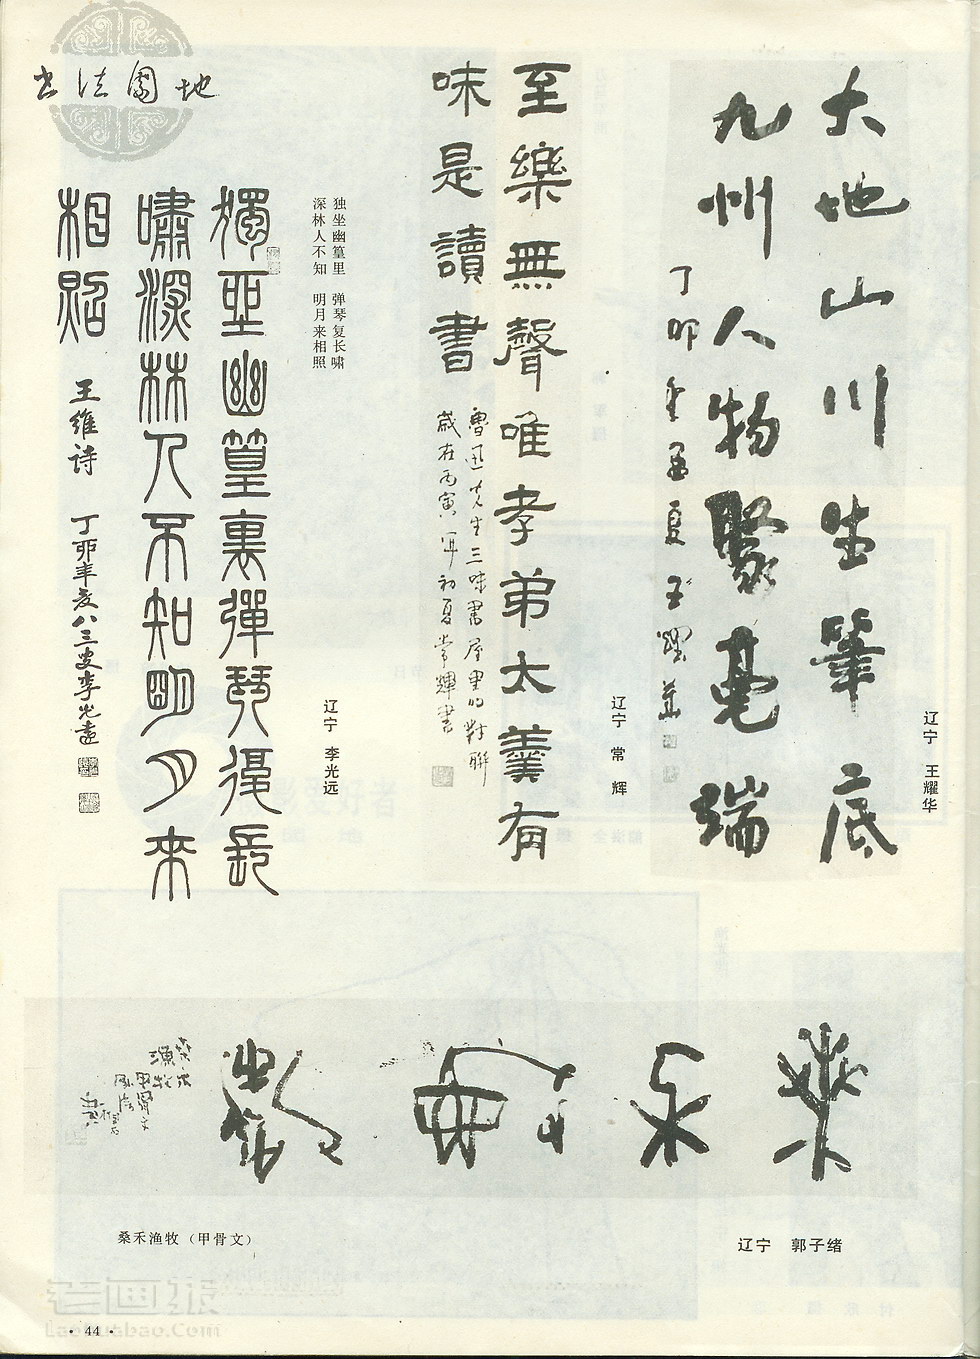 书法园地
大地山川生笔底
九州人物聚毫端
丁卯年孟夏王耀华
辽宁 王耀华
至樂無聲唯孝弟太羹有
味是讀書
魯迅先生三味書屋里的對聯
歲在丙寅年初夏常輝書
辽宁 常 辉
独坐幽篁里 弹琴复长啸
深林人不知 明月来相照
獨坐幽篁裏彈琴復長
嘯深林人不知明月來
相照
王维诗 丁卯年夏八三叟李光遠
辽宁 李光远
桑禾漁牧
桑禾
漁牧
甲骨文
桑禾渔牧（甲骨文）
辽宁 郭子绪
老画报
LaoHuabao.Com
· 44 ·